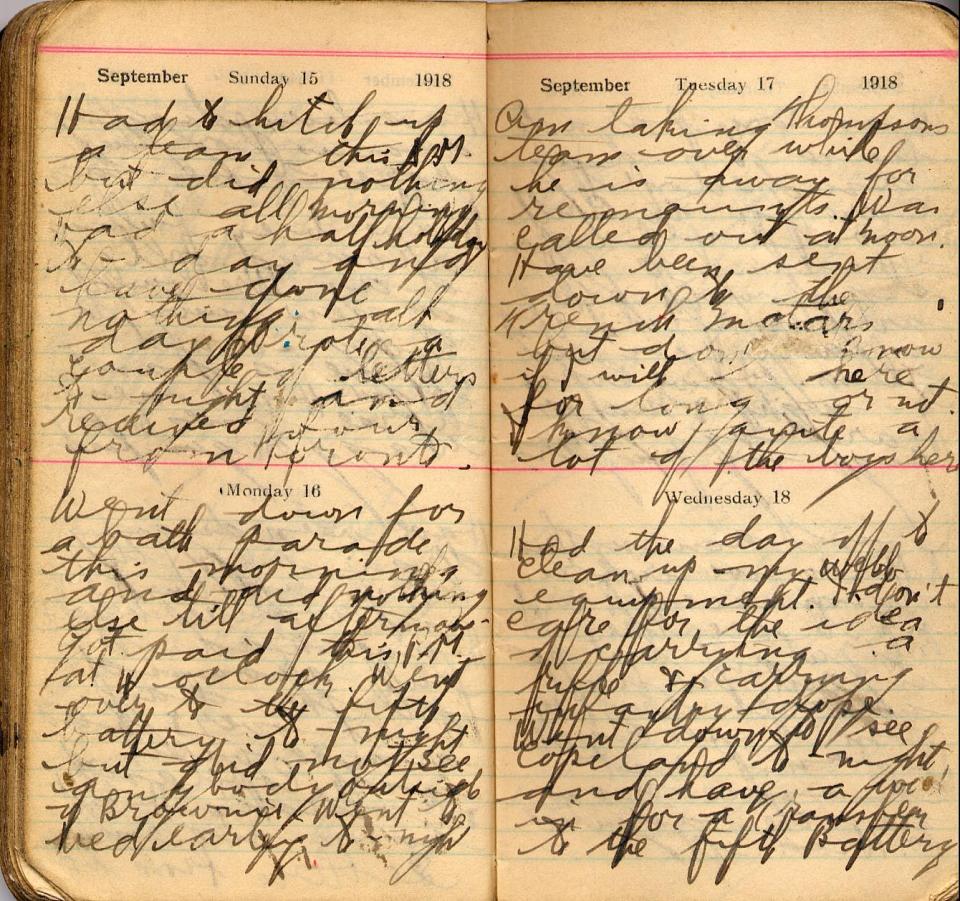 September Sunday 15 1918
Had to hitch up
a team this A.M.
but did nothing
else all morning
had a half holiday
to-day and
have done
nothing all
day. Wrote a
couple of letters
to-night and
received four
from Toronto.
Monday 16
Went down for
a bath parade
this morning
and did nothing
else till afternoon
got paid this P.M.
at 4 oclock. Went
over to the fifth
battery to-night
but did not see
anybody outside
of Brownie. Went to
bed early to-night
September Tuesday 17 1918
Am taking Thompsons
team over while
he is away for
remounts. Was
called out at noon.
Have been sent
down to the
Trench Motars
but don know
if I will here
for long or not.
I know quite a
lot of the boys here
Wednesday 18
Had the day off to
clean up my webb
equipment. I don't
care for the idea
of carrying a
rifle & carrying
infantry dope.
Went down to see
Copeland to-night,
and have a
in for a transfer
to the fifth Battery